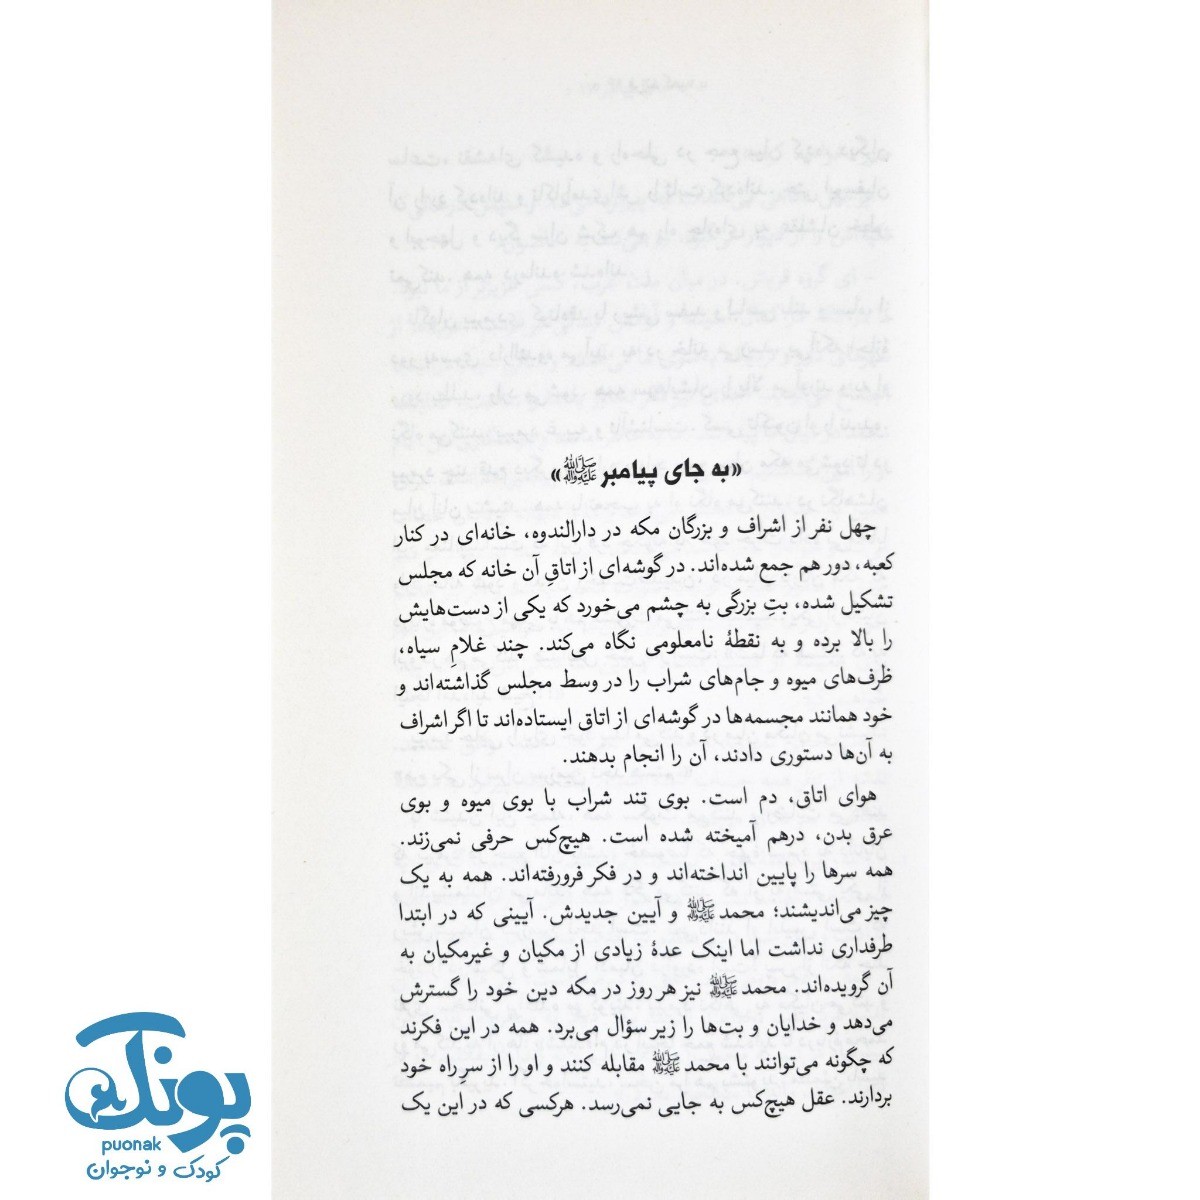 «به جای پیامبر ﷺ»
چهل نفر از اشراف و بزرگان مکه در دارالندوه، خانه‌ای در کنار
کعبه، دور هم جمع شده‌اند. در گوشه‌ای از اتاقِ آن خانه که مجلس
تشکیل شده، بتِ بزرگی به چشم می‌خورد که یکی از دست‌هایش
را بالا برده و به نقطهٔ نامعلومی نگاه می‌کند. چند غلامِ سیاه،
ظرف‌های میوه و جام‌های شراب را در وسط مجلس گذاشته‌اند و
خود همانند مجسمه‌ها در گوشه‌ای از اتاق ایستاده‌اند تا اگر اشراف
به آن‌ها دستوری دادند، آن را انجام بدهند.
هوای اتاق، دم است. بوی تند شراب با بوی میوه و بوی
عرق بدن، درهم آمیخته شده است. هیچ‌کس حرفی نمی‌زند.
همه سرها را پایین انداخته‌اند و در فکر فرورفته‌اند. همه به یک
چیز می‌اندیشند؛ محمد ﷺ و آیین جدیدش. آیینی که در ابتدا
طرفداری نداشت اما اینک عدهٔ زیادی از مکیان و غیرمکیان به
آن گرویده‌اند. محمد ﷺ نیز هر روز در مکه دین خود را گسترش
می‌دهد و خدایان و بت‌ها را زیر سؤال می‌برد. همه در این فکرند
که چگونه می‌توانند با محمد ﷺ مقابله کنند و او را از سرِ راه خود
بردارند. عقل هیچ‌کس به جایی نمی‌رسد. هرکسی که در این یک
پونک
puonak
کودک و نوجوان